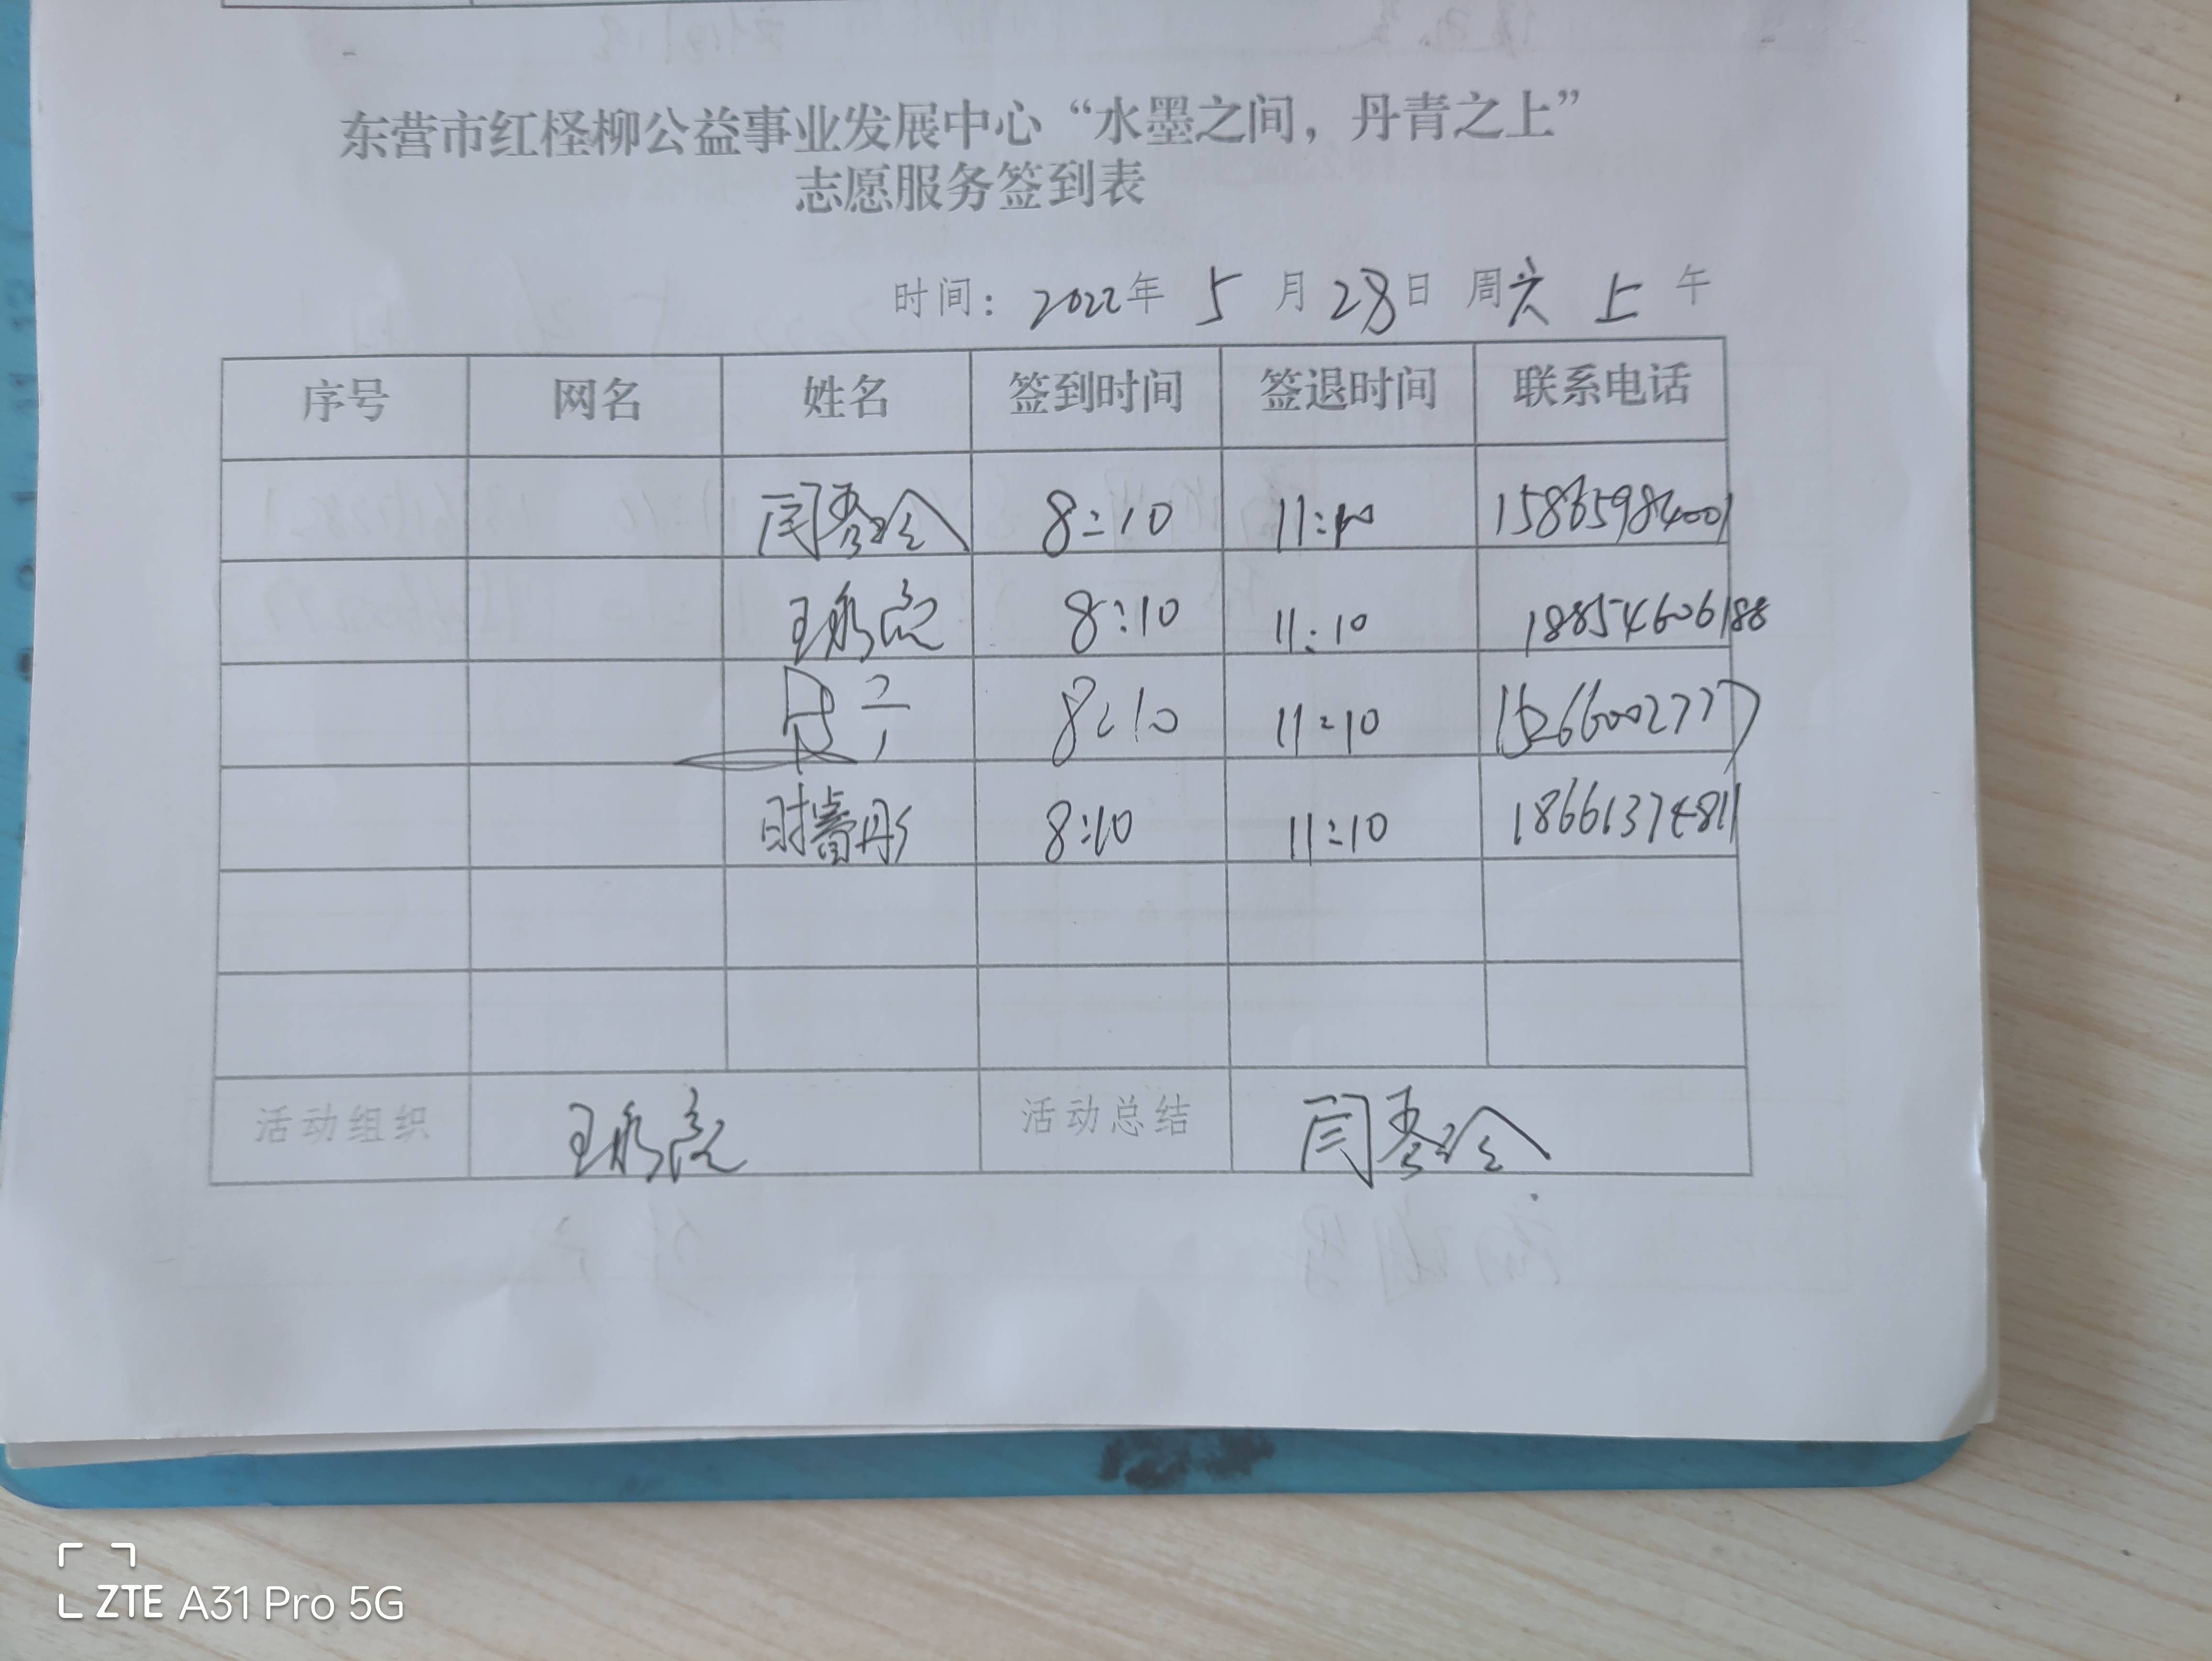 东营市红柽柳公益事业发展中心“水墨之间，丹青之上”
志愿服务签到表
时间：2022年 5 月 28日 周六 上 午
序号 网名 姓名 签到时间 签退时间 联系电话
闫秀玲 8:10 11:10 15865984001
王 8:10 11:10 18854606188
8:10 11:10 15266002777
时 8:10 11:10 18661374811
活动组织 王 活动总结 闫秀玲
ZTE A31 Pro 5G